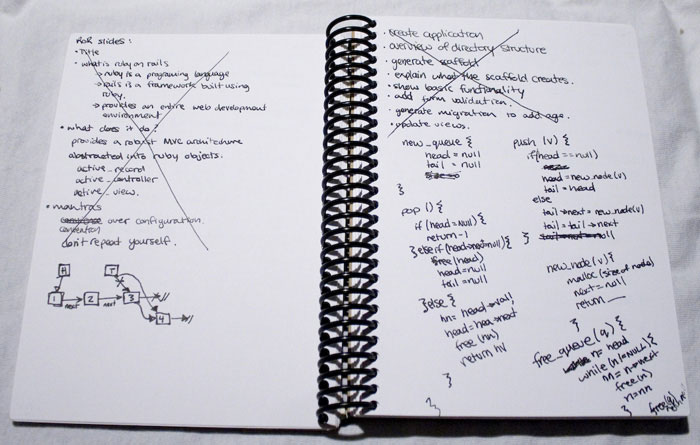 RoR slides:
• Title
• what is ruby on rails
→ ruby is a programing language
→ rails is a framework built using
ruby.
→ provides an entire web development
environment
• what does it do?
provides a robust MVC architecture
abstracted into ruby objects.
active_record
active_controller
active_view.
• mantras
convention over configuration.
don't repeat yourself.
H T
1 next 2 next 3
4
• create application
• overview of directory structure
• generate scaffold
• explain what the scaffold creates.
• show basic functionality
• add form validation.
• generate migration to add age.
• update views.
new_queue {
head = null
tail = null
}
pop () {
if (head == null) {
return -1
} else if (head→next=null) {
free (head)
head = null
tail = null
} else {
hn = head→val;
head = hea→next
free (hn)
return hv
}
}
push (v) {
if (head == null)
head = new_node(v)
tail = head
else
tail→next = new_node(v)
tail = tail→next
tail→next = null
new_node(v) {
malloc (size of node)
next = null
return __
}
free_queue (q) {
n = head
while (n != NULL) {
nn = n→next
free(n)
n = nn
}
free(q)